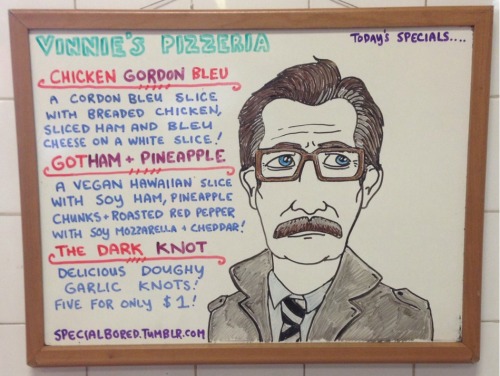 VINNIE'S PIZZERIA
TODAY'S SPECIALS....
CHICKEN GORDON BLEU
A CORDON BLEU SLICE
WITH BREADED CHICKEN,
SLICED HAM AND BLEU
CHEESE ON A WHITE SLICE!
GOTHAM + PINEAPPLE
A VEGAN HAWAIIAN SLICE
WITH SOY HAM, PINEAPPLE
CHUNKS + ROASTED RED PEPPER
WITH SOY MOZZARELLA + CHEDDAR!
THE DARK KNOT
DELICIOUS DOUGHY
GARLIC KNOTS!
FIVE FOR ONLY $1!
SPECIALBORED.TUMBLR.COM